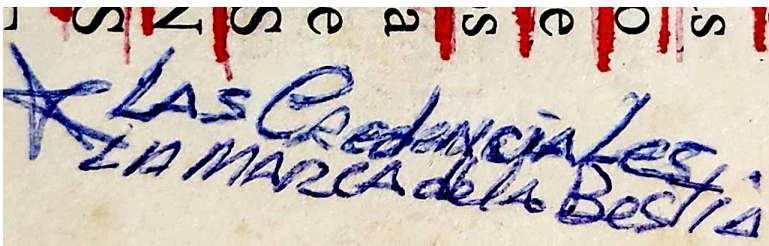 * Las Credenciales.
La Marca de la Bestia